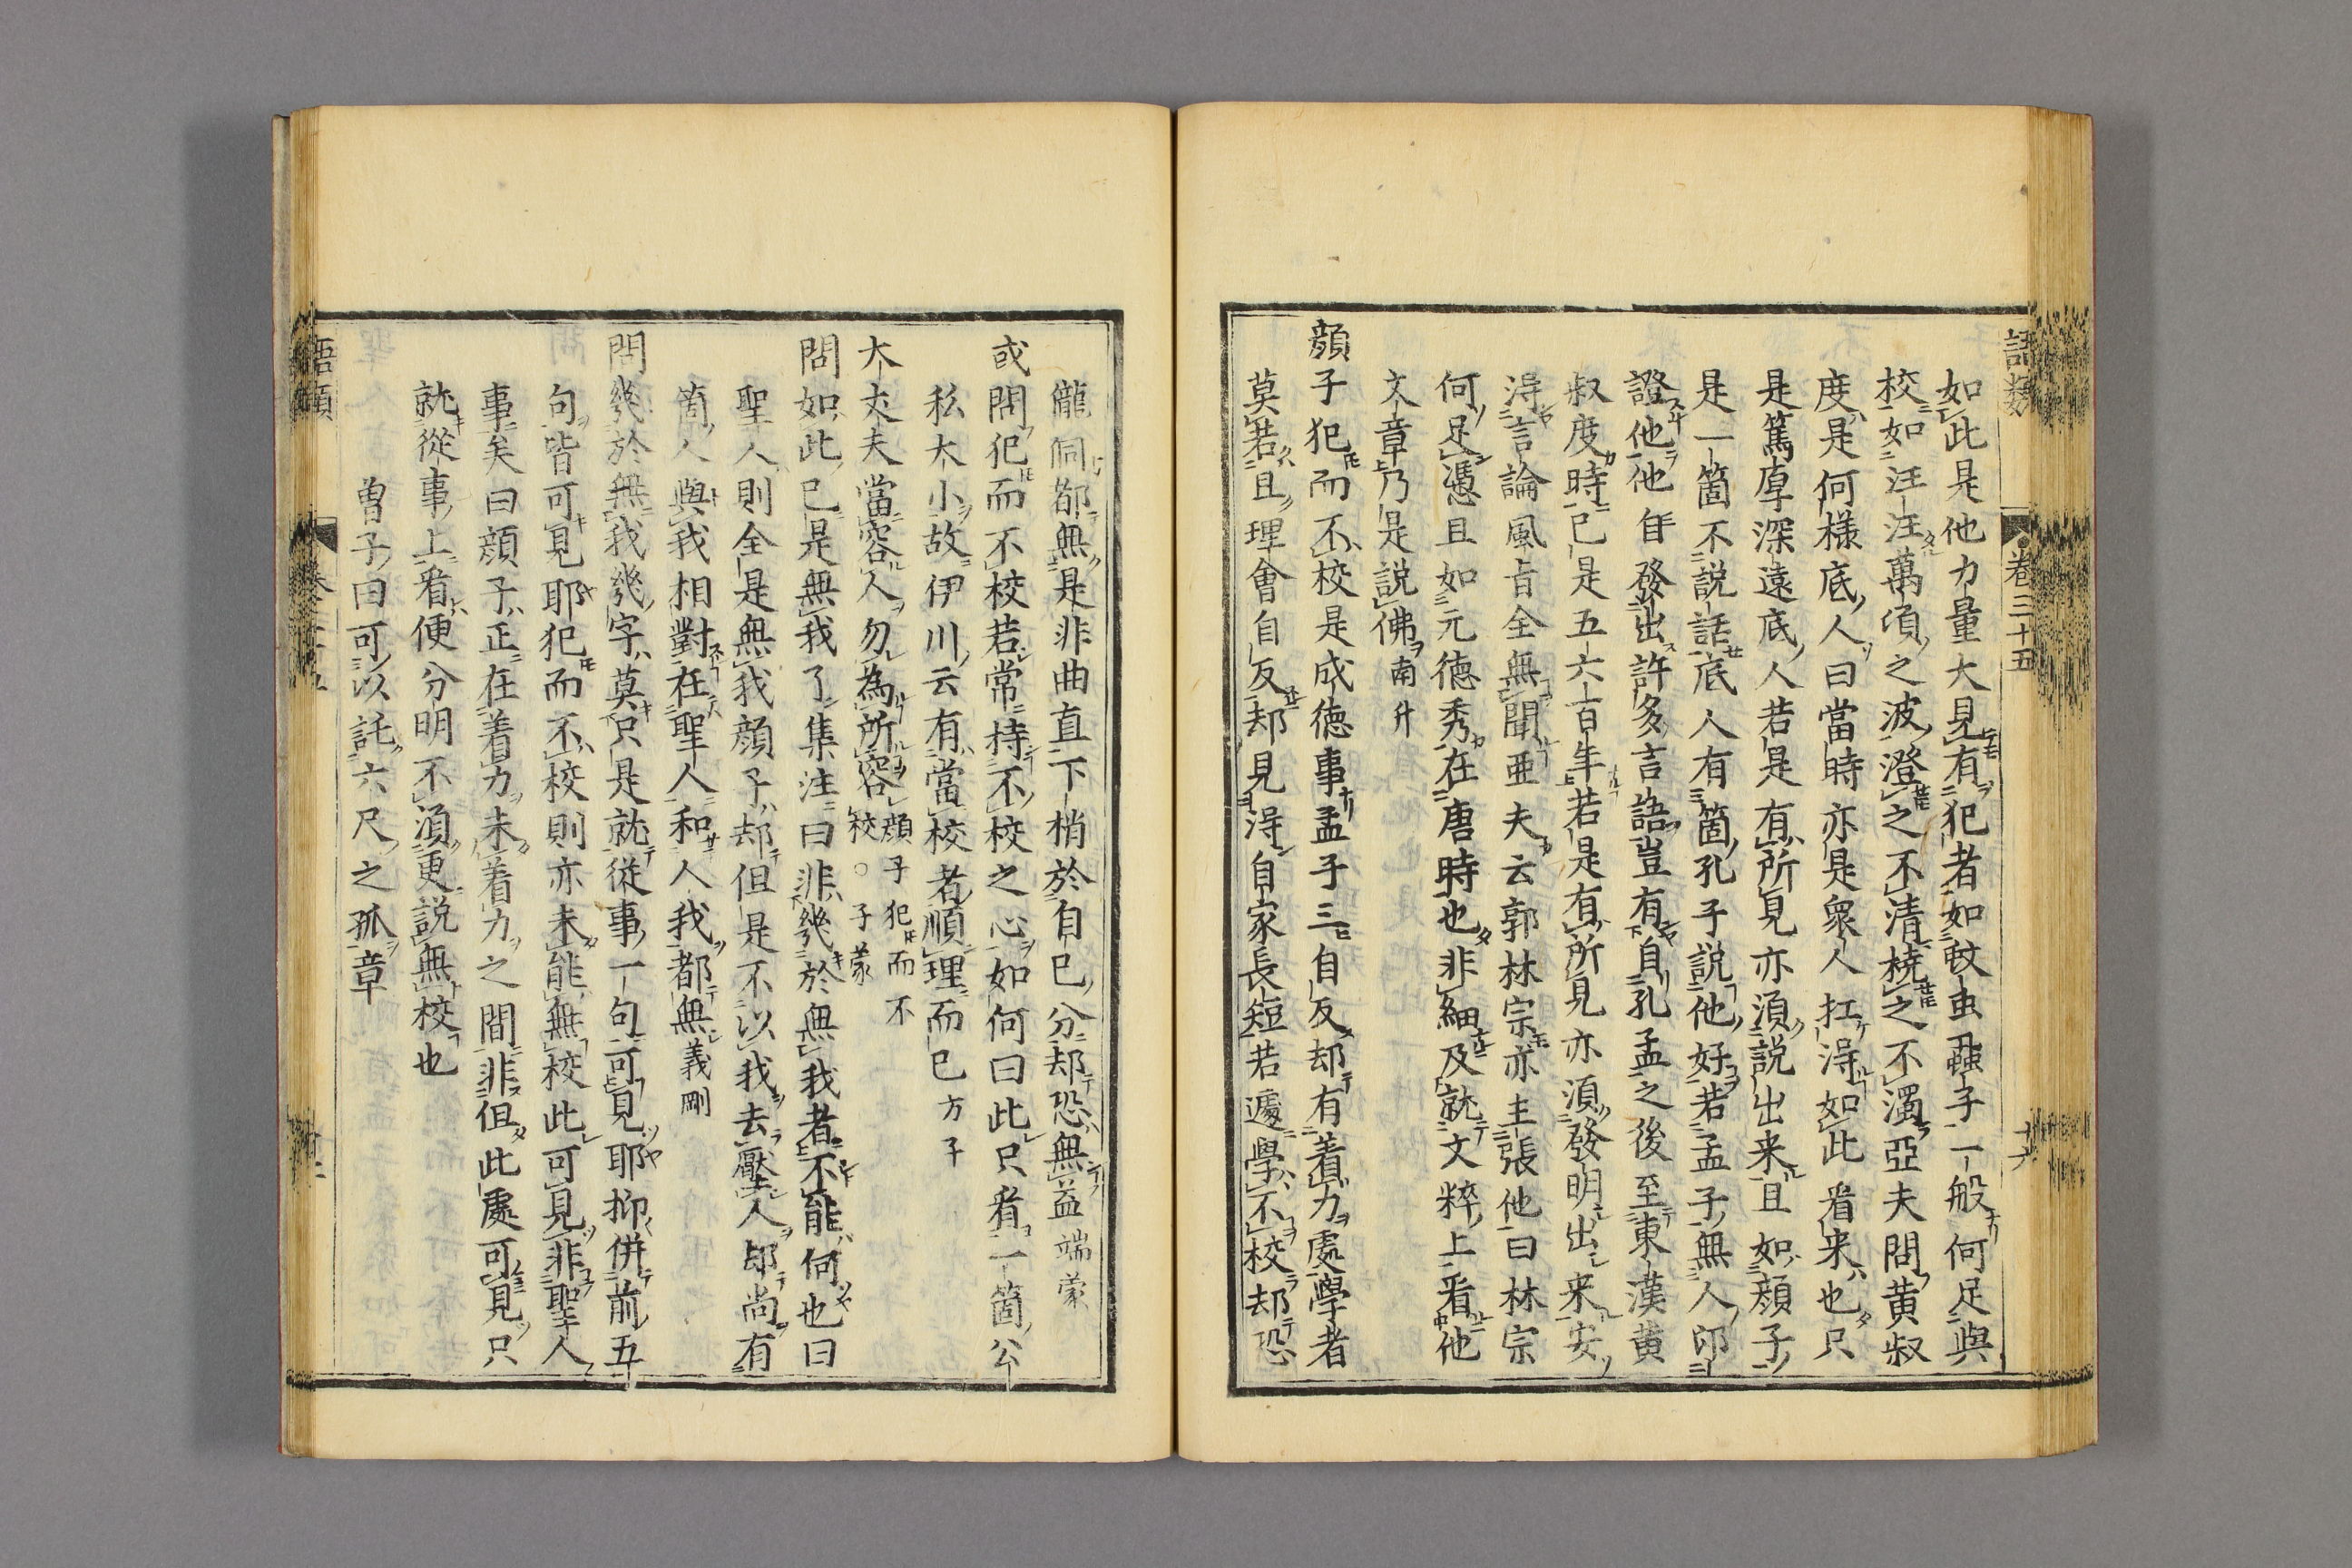 語類 卷三十五 十六
如此是他力量大見有犯者如蚊虫蝨子一般何足與
校如汪汪萬頃之波澄之不清撓之不濁亞夫問黄叔
度是何樣底人曰當時亦是衆人扛得如此看来也只
是篤厚深遠底人若是有所見亦須說出来且如顔子
是一箇不說話底人有箇孔子說他好若孟子無人印
證他他自發出許多言語豈有自孔孟之後至東漢黄
叔度時已是五六百年若是有所見亦須發明出来安
得言論風旨全無聞亜夫云郭林宗亦主張他曰林宗
何足憑且如元徳秀在唐時也非細及就文粹上看他
文章乃是說佛南升
顔子犯而不校是成徳事孟子三自反却有着力處學者
莫若且理會自反却見得自家長短若遽學不校却恐
儱侗都無是非曲直下梢於自已分却恐無益端蒙
或問犯而不校若常持不校之心如何曰此只看一箇公
私大小故伊川云有當校者順理而已方子
大丈夫當容人勿為所容顔子犯而不校○子蒙
問如此已是無我了集注曰非幾於無我者不能何也曰
聖人則全是無我顔子却但是不以我去壓人却尚有
箇人與我相對在聖人和人我都無義剛
問幾於無我幾字莫只是就從事一句可見耶抑併前五
句皆可見耶犯而不校則亦未能無校此可見非聖人
事矣曰顔子正在着力未着力之間非但此處可見只
就從事上看便分明不須更說無校也
曽子曰可以託六尺之孤章
語類